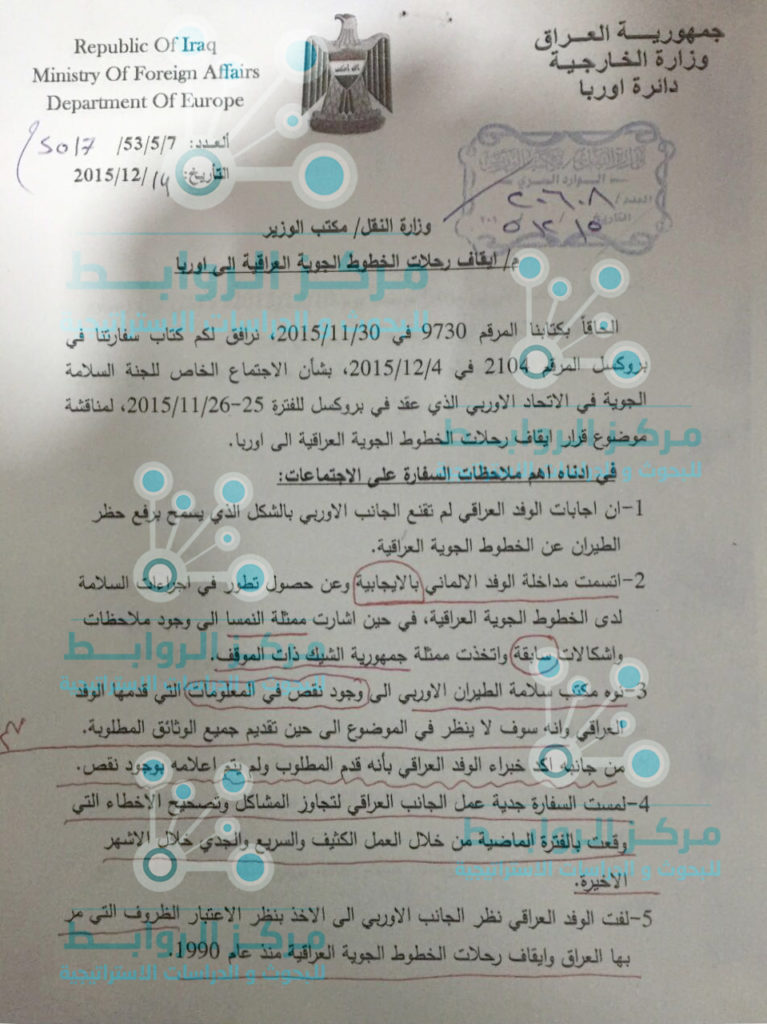 Republic Of Iraq
Ministry Of Foreign Affairs
Department Of Europe
جمهورية العراق
وزارة الخارجية
دائرة اوربا
العدد: 53/5/7/ 5017
التأريخ: 14/12/2015
الوارد السري
العدد/ ٢٠٦٠٨
التاريخ
وزارة النقل/ مكتب الوزير
م/ ايقاف رحلات الخطوط الجوية العراقية الى اوربا
الحاقاً بكتابنا المرقم 9730 في 2015/11/30، نرافق لكم كتاب سفارتنا في
بروكسل المرقم 2104 في 2015/12/4، بشأن الاجتماع الخاص للجنة السلامة
الجوية في الاتحاد الاوربي الذي عقد في بروكسل للفترة 25-2015/11/26، لمناقشة
موضوع قرار ايقاف رحلات الخطوط الجوية العراقية الى اوربا.
في ادناه اهم ملاحظات السفارة على الاجتماعات:
1-ان اجابات الوفد العراقي لم تقنع الجانب الاوربي بالشكل الذي يسمح برفع حظر
الطيران عن الخطوط الجوية العراقية.
2-اتسمت مداخلة الوفد الالماني بالايجابية وعن حصول تطور في اجراءات السلامة
لدى الخطوط الجوية العراقية، في حين اشارت ممثلة النمسا الى وجود ملاحظات
واشكالات سابقة واتخذت ممثلة جمهورية الشيك ذات الموقف.
3-نوه مكتب سلامة الطيران الاوربي الى وجود نقص في المعلومات التي قدمها الوفد
العراقي وانه سوف لا ينظر في الموضوع الى حين تقديم جميع الوثائق المطلوبة.
من جانبه اكد خبراء الوفد العراقي بأنه قدم المطلوب ولم يتم اعلامه بوجود نقص.
4-لمست السفارة جدية عمل الجانب العراقي لتجاوز المشاكل وتصحيح الاخطاء التي
وقعت بالفترة الماضية من خلال العمل الكثيف والسريع والجدي خلال الاشهر
الاخيرة.
5-لفت الوفد العراقي نظر الجانب الاوربي الى الاخذ بنظر الاعتبار الظروف التي مر
بها العراق وايقاف رحلات الخطوط الجوية العراقية منذ عام 1990.
مركز الروابط
للبحوث و الدراسات الاستراتيجية
مركز الروابط
للبحوث و الدراسات الاستراتيجية
مركز الروابط
للبحوث و الدراسات الاستراتيجية
مركز الروابط
للبحوث و الدراسات الاستراتيجية
مركز الروابط
للبحوث و الدراسات الاستراتيجية